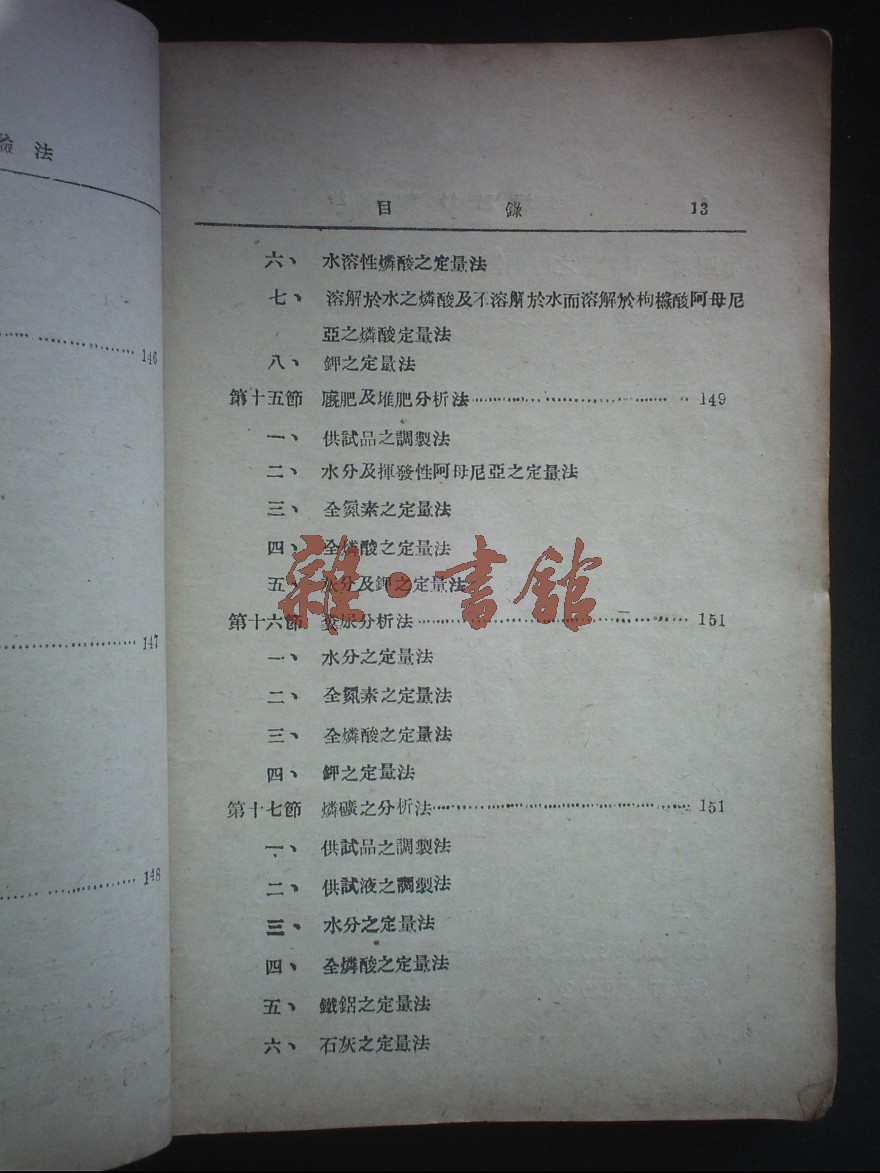 驗法
146
147
148
目錄 13
六、 水溶性燐酸之定量法
七、 溶解於水之燐酸及不溶解於水而溶解於枸櫞酸阿母尼
亞之燐酸定量法
八、 鉀之定量法
第十五節 廐肥及堆肥分析法 149
一、 供試品之調製法
二、 水分及揮發性阿母尼亞之定量法
三、 全氮素之定量法
四、 全燐酸之定量法
五、 灰分及鉀之定量法
第十六節 糞尿分析法 151
一、 水分之定量法
二、 全氮素之定量法
三、 全燐酸之定量法
四、 鉀之定量法
第十七節 燐礦之分析法 151
一、 供試品之調製法
二、 供試液之調製法
三、 水分之定量法
四、 全燐酸之定量法
五、 鐵鋁之定量法
六、 石灰之定量法
雜·書館